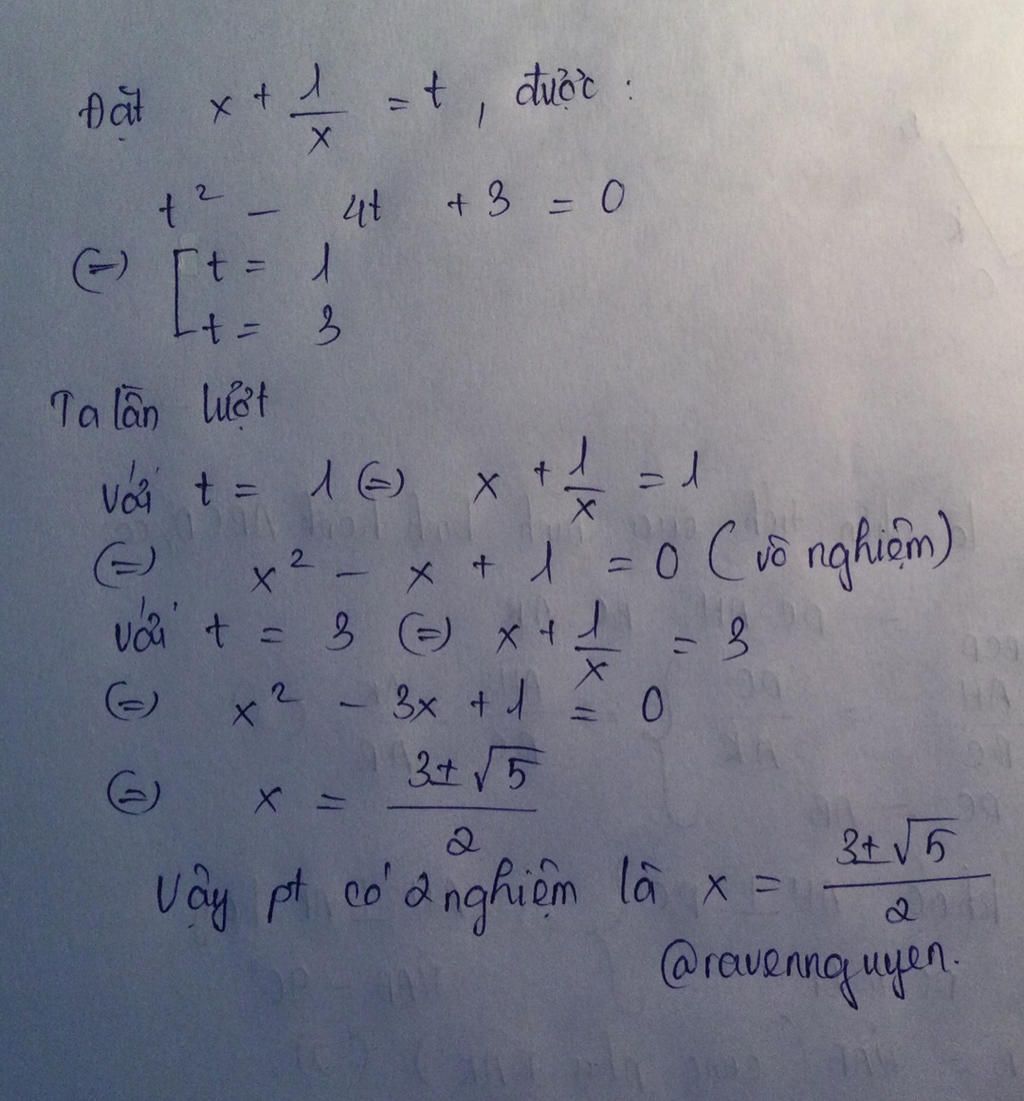 Đặt x + 1/x = t, được:
t² - 4t + 3 = 0
(=) [ t = 1
t = 3
Ta lần lượt
với t = 1 (=) x + 1/x = 1
(=) x² - x + 1 = 0 (vô nghiệm)
với t = 3 (=) x + 1/x = 3
(=) x² - 3x + 1 = 0
(=) x = (3±√5)/2
Vậy pt có 2 nghiệm là x = (3±√5)/2
@ravennguyen.